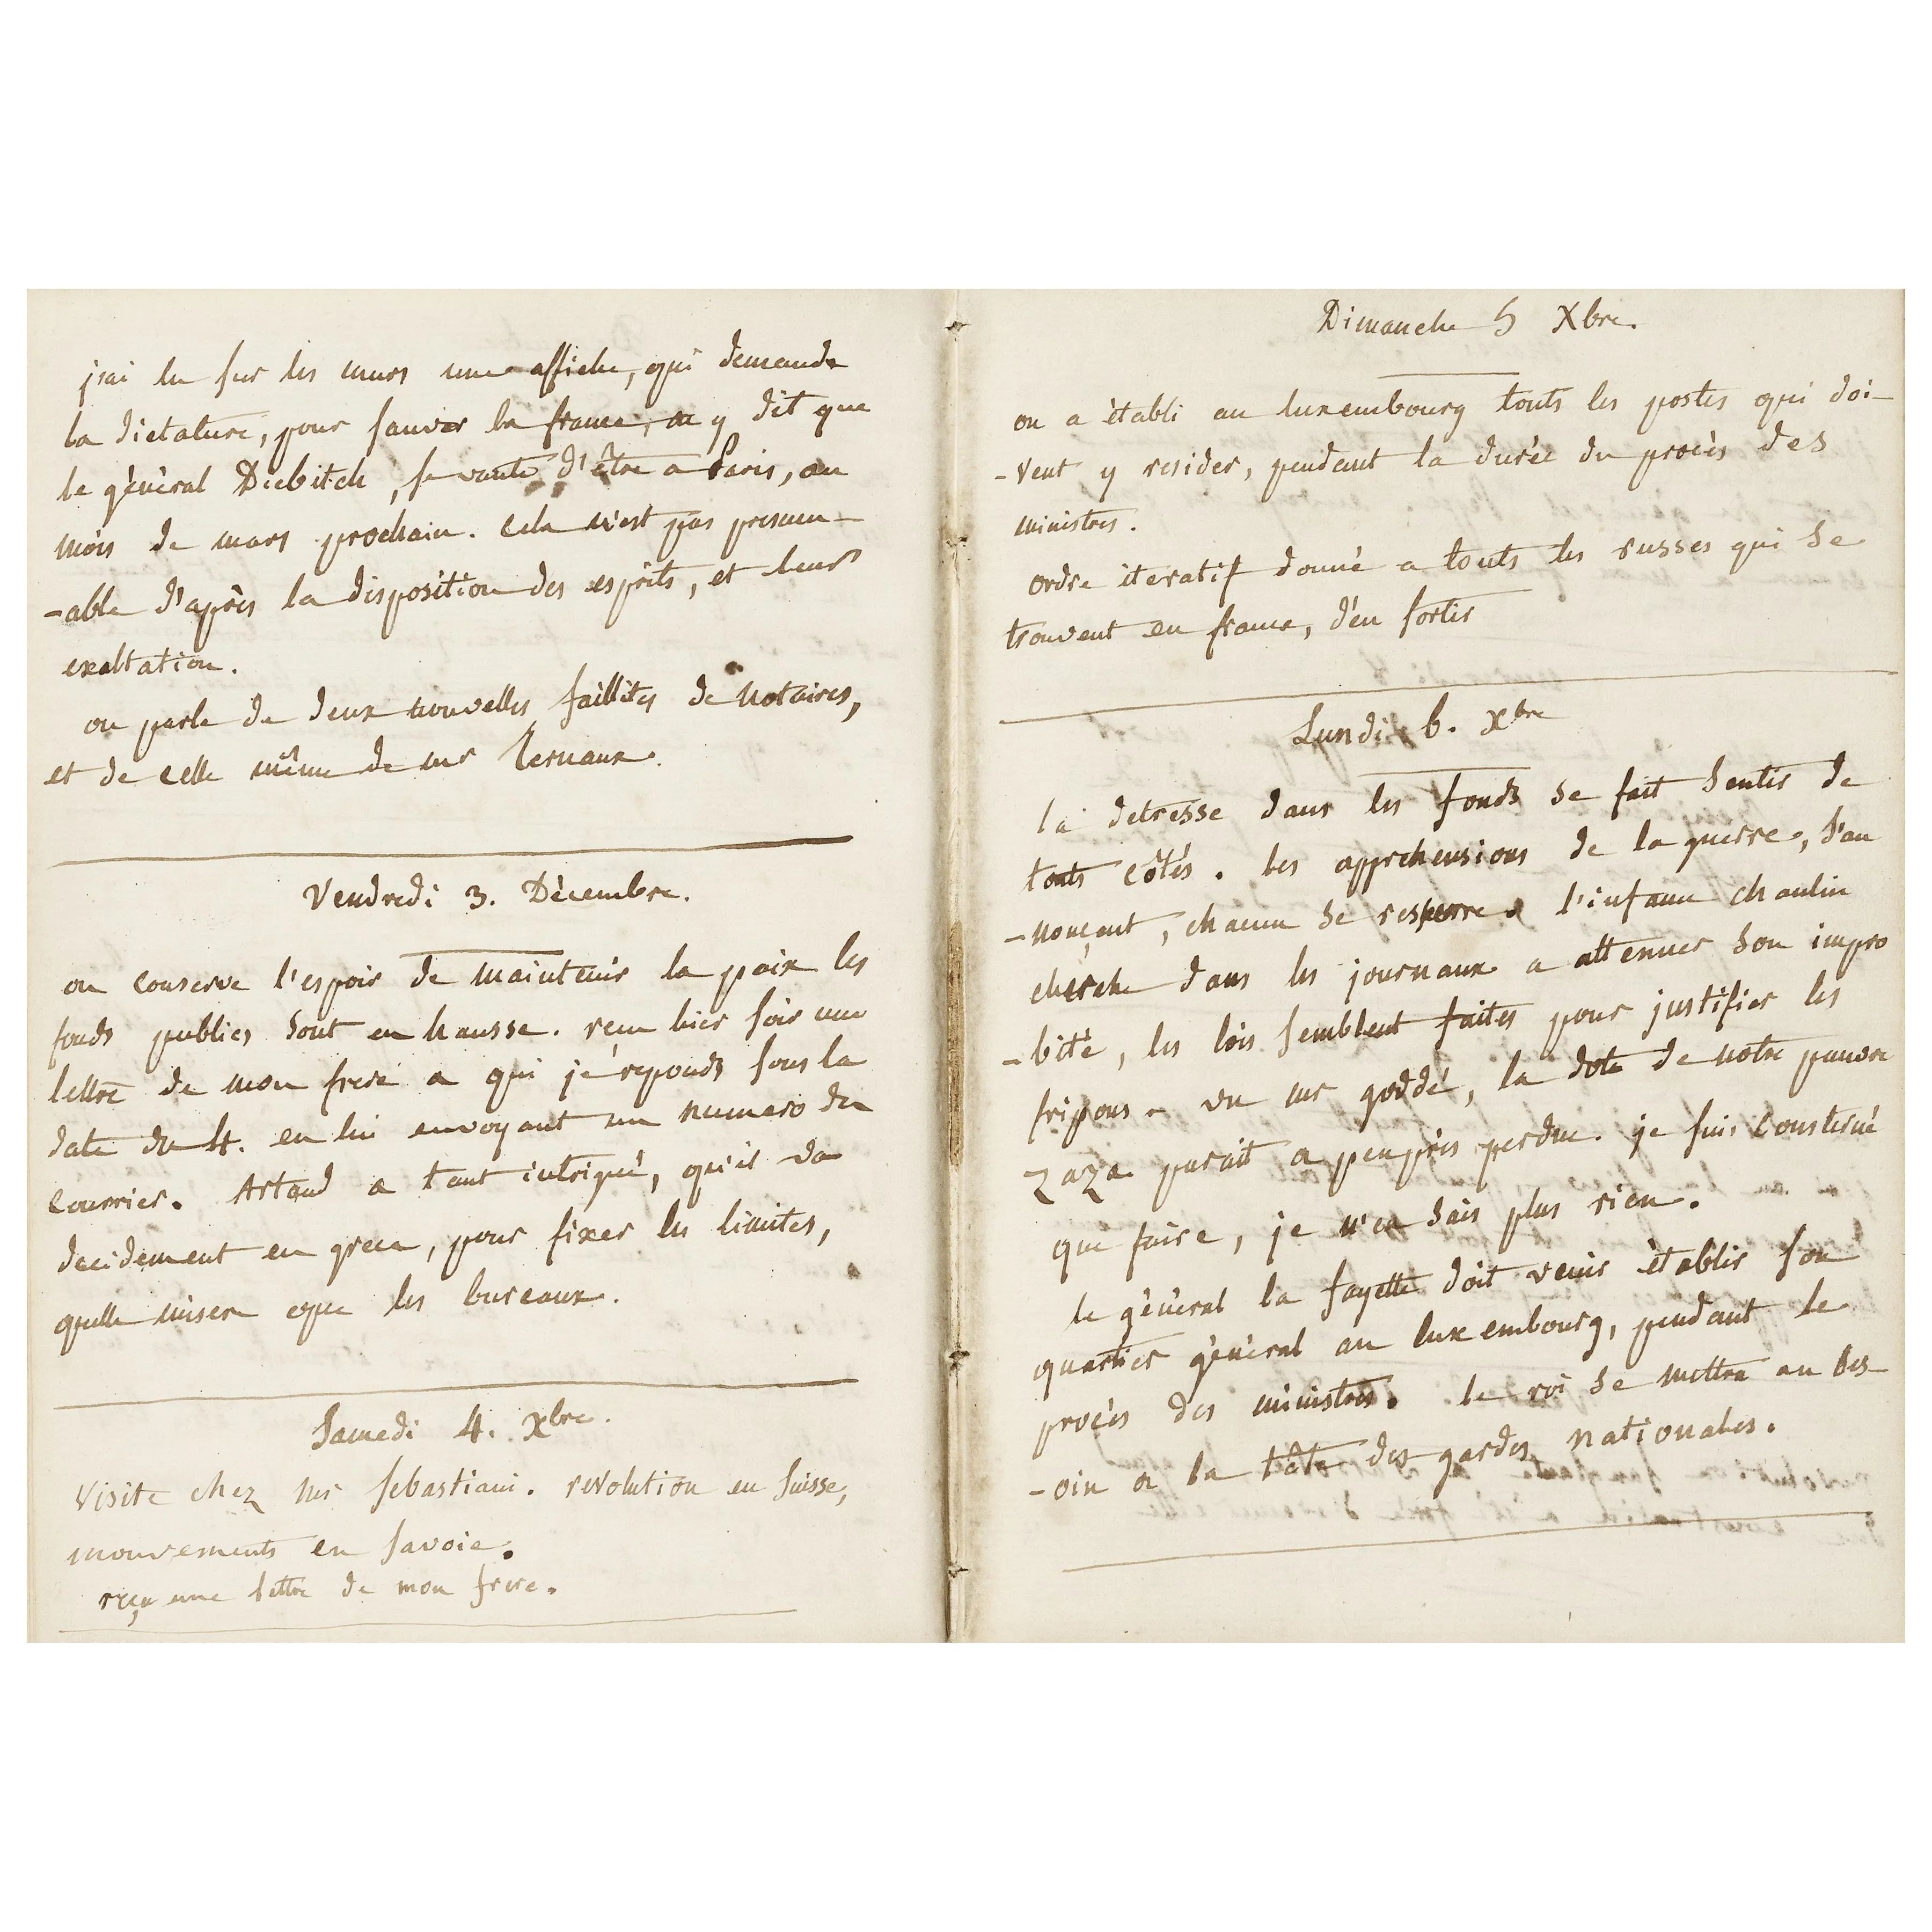 j'ai lu sur les murs une affiche, qui demande
la dictature, pour sauver la france, on y dit que
le général Diebitch, se vante d'être a Paris, au
mois de mars prochain. cela n'est pas presum-
-able d'après la disposition des esprits, et leur
exaltation.
on parle de deux nouvelles faillites de Notaires,
et de celle même de mr Ternaux.
Vendredi 3. Décembre.
on conserve l'espoir de maintenir la paix les
fonds publics sont en hausse. recu hier soir une
lettre de mon frere a qui je reponds sous la
date du 4. en lui envoyant un numero du
courrier. Artaud a tant intrigué, qu'il va
decidement en grece, pour fixer les limites,
quelle misere que les bureaux.
Samedi 4. Xbre.
Visite chez mr sebastiani. revolution en suisse,
mouvements en savoie.
reçu une lettre de mon frere.
Dimanche 5 Xbre.
on a établi au luxembourg touts les postes qui doi-
-vent y resider, pendant la durée du procès des
ministres.
ordre iteratif donné a touts les russes qui se
trouvent en france, d'en sortir
Lundi 6. Xbre
la detresse dans les fonds se fait sentir de
touts côtés. les apprehensions de la guerre, s'an
-nonçent, chacun se resserre. l'infame chaulin
cherche dans les journaux a attenuer son impro
-bité, les lois semblent faites pour justifier les
fripons. vu mr goddé, la dote de notre pauvre
zaza parait a peuprès perdue. je suis consterné
que faire, je n'en sais plus rien.
le général la fayette doit venir établir son
quartier général au luxembourg, pendant le
procès des ministres. le roi se mettra au bes-
-oin a la tâte des gardes nationales.